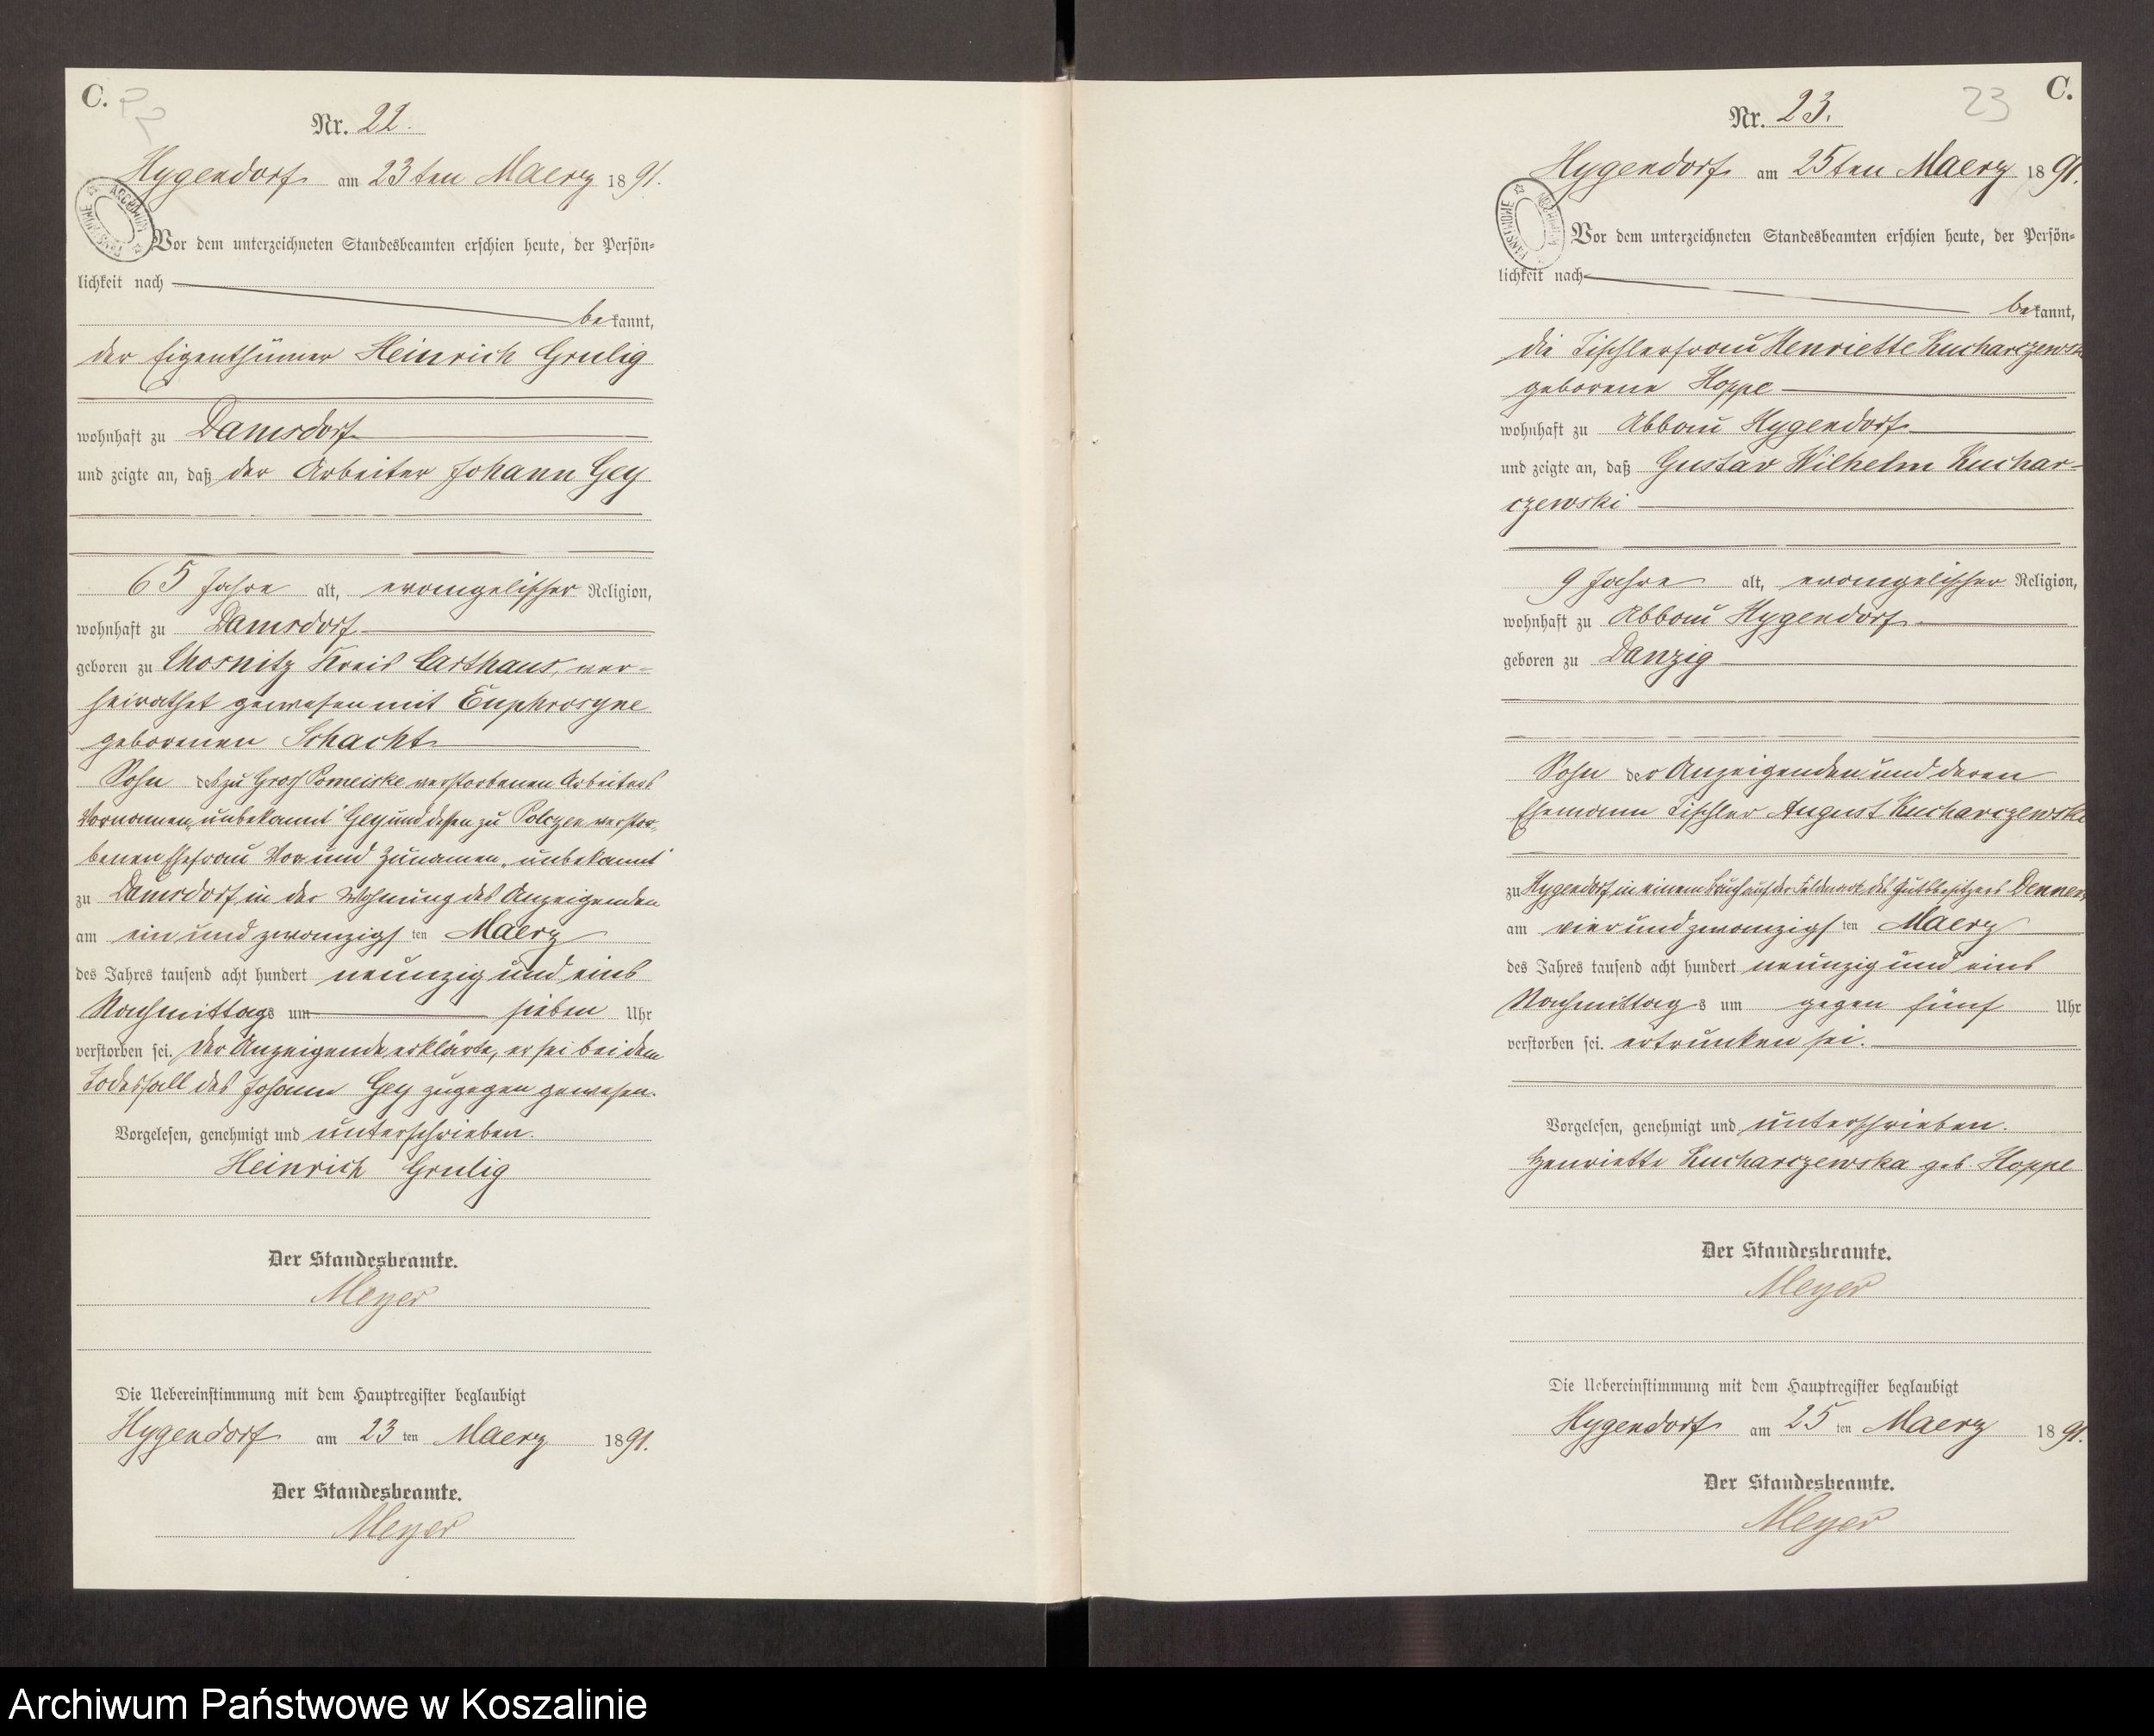 C.
Nr. 22.
Hygendorf am 23ten Maerz 1891.
Vor dem unterzeichneten Standesbeamten erschien heute, der Persön-
lichkeit nach
bekannt,
der Eigenthümer Heinrich Grulig
wohnhaft zu Damsdorf
und zeigte an, daß der Arbeiter Johann Gey
65 Jahre alt, evangelischer Religion,
wohnhaft zu Damsdorf
geboren zu Chosnitz Kreis Carthaus, ver-
heirathet gewesen mit Euphrosyne
geborenen Schacht
Sohn des zu Groß Pomeiske verstorbenen Arbeiters
Vornamen „unbekannt“ Gey und dessen zu Polczen verstor-
benen Ehefrau Vor und Zunamen „unbekannt“
zu Damsdorf, in der Wohnung des Anzeigenden
am ein und zwanzigsten Maerz
des Jahres tausend acht hundert neunzig und eins
Nachmittags um sieben Uhr
verstorben sei. Der Anzeigende erklärte, er sei bei dem
Todesfall des Johann Gey zugegen gewesen.
Vorgelesen, genehmigt und unterschrieben.
Heinrich Grulig
Der Standesbeamte.
Meyer
Die Uebereinstimmung mit dem Hauptregister beglaubigt
Hygendorf am 23ten Maerz 1891.
Der Standesbeamte.
Meyer
23 C.
Nr. 23.
Hygendorf am 25ten Maerz 1891.
Vor dem unterzeichneten Standesbeamten erschien heute, der Persön-
lichkeit nach
bekannt,
die Tischlerfrau Henriette Kucharczewski
geborene Hoppe
wohnhaft zu Abbau Hygendorf
und zeigte an, daß Gustav Wilhelm Kuchar-
czewski
9 Jahre alt, evangelischer Religion,
wohnhaft zu Abbau Hygendorf
geboren zu Danzig
Sohn der Anzeigenden und deren
Ehemann Tischler August Kucharczewski
zu Hygendorf, in einem Bruch auf der Feldmark des Gutsbesitzers Denner
am vier und zwanzigsten Maerz
des Jahres tausend acht hundert neunzig und eins
Nachmittags um gegen fünf Uhr
verstorben sei. ertrunken sei.
Vorgelesen, genehmigt und unterschrieben.
Henriette Kucharczewska geb. Hoppe
Der Standesbeamte.
Meyer
Die Uebereinstimmung mit dem Hauptregister beglaubigt
Hygendorf am 25ten Maerz 1891.
Der Standesbeamte.
Meyer
Archiwum Państwowe w Koszalinie